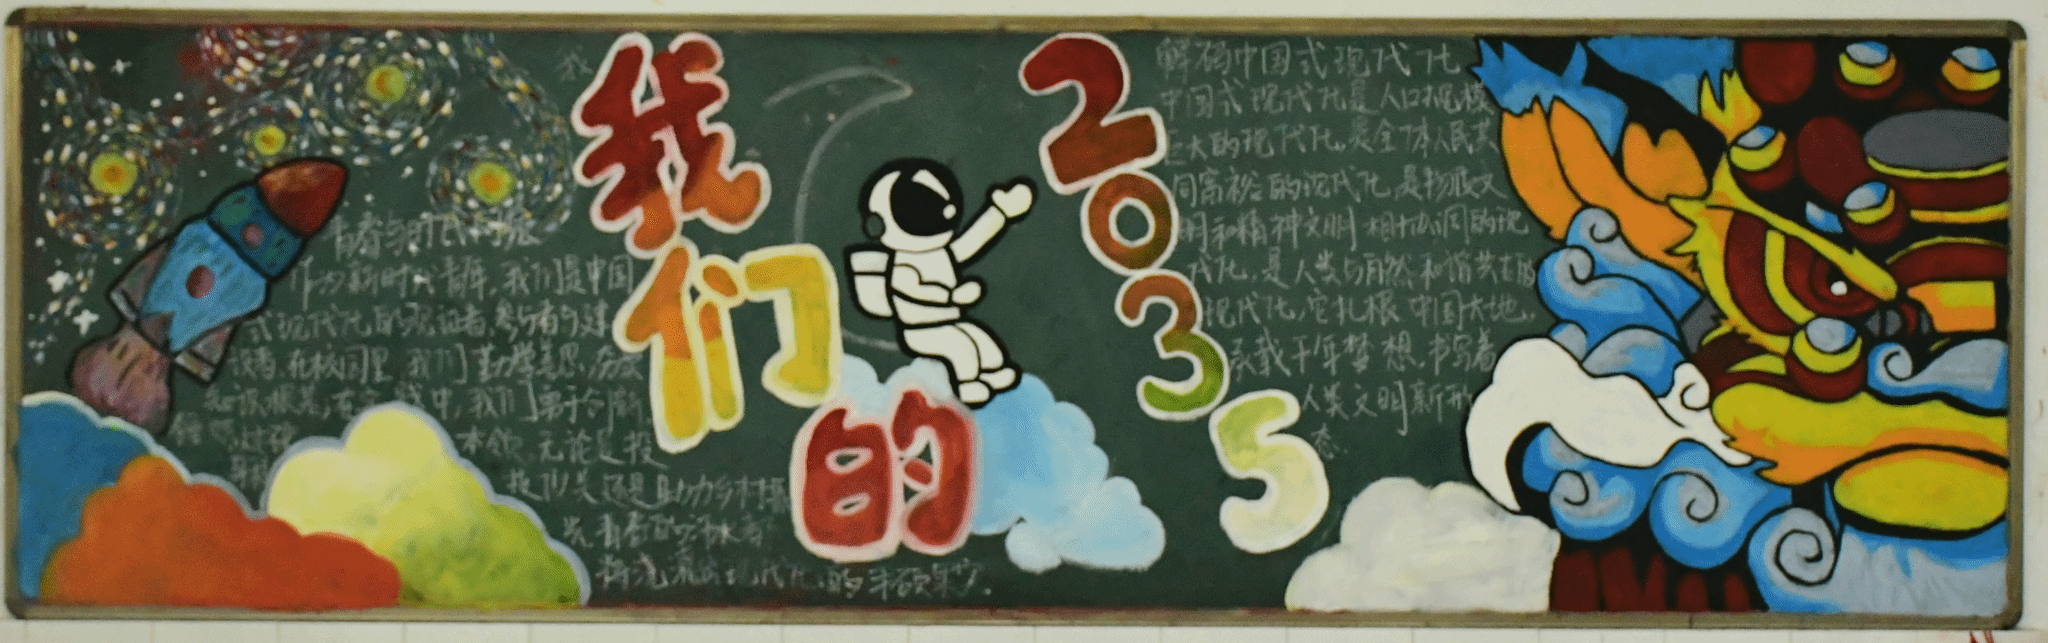 我们的
2035
青春与时代同频
作为新时代青年,我们是中国
式现代化的见证者、参与者与建
设者。在校园里,我们勤学善思,
中,我们勇于
本领。无论是投
还是助力乡村振
兴,青春的
将浇灌出现代化的丰硕果实。
解码中国式现代化
中国式现代化是人口规模
巨大的现代化,是全体人民共
同富裕的现代化,是物质文
明和精神文明相协调的现
代化,是人类与自然和谐共生的
现代化,它扎根中国大地,
承载千年梦想,书写着
人类文明新形
态.